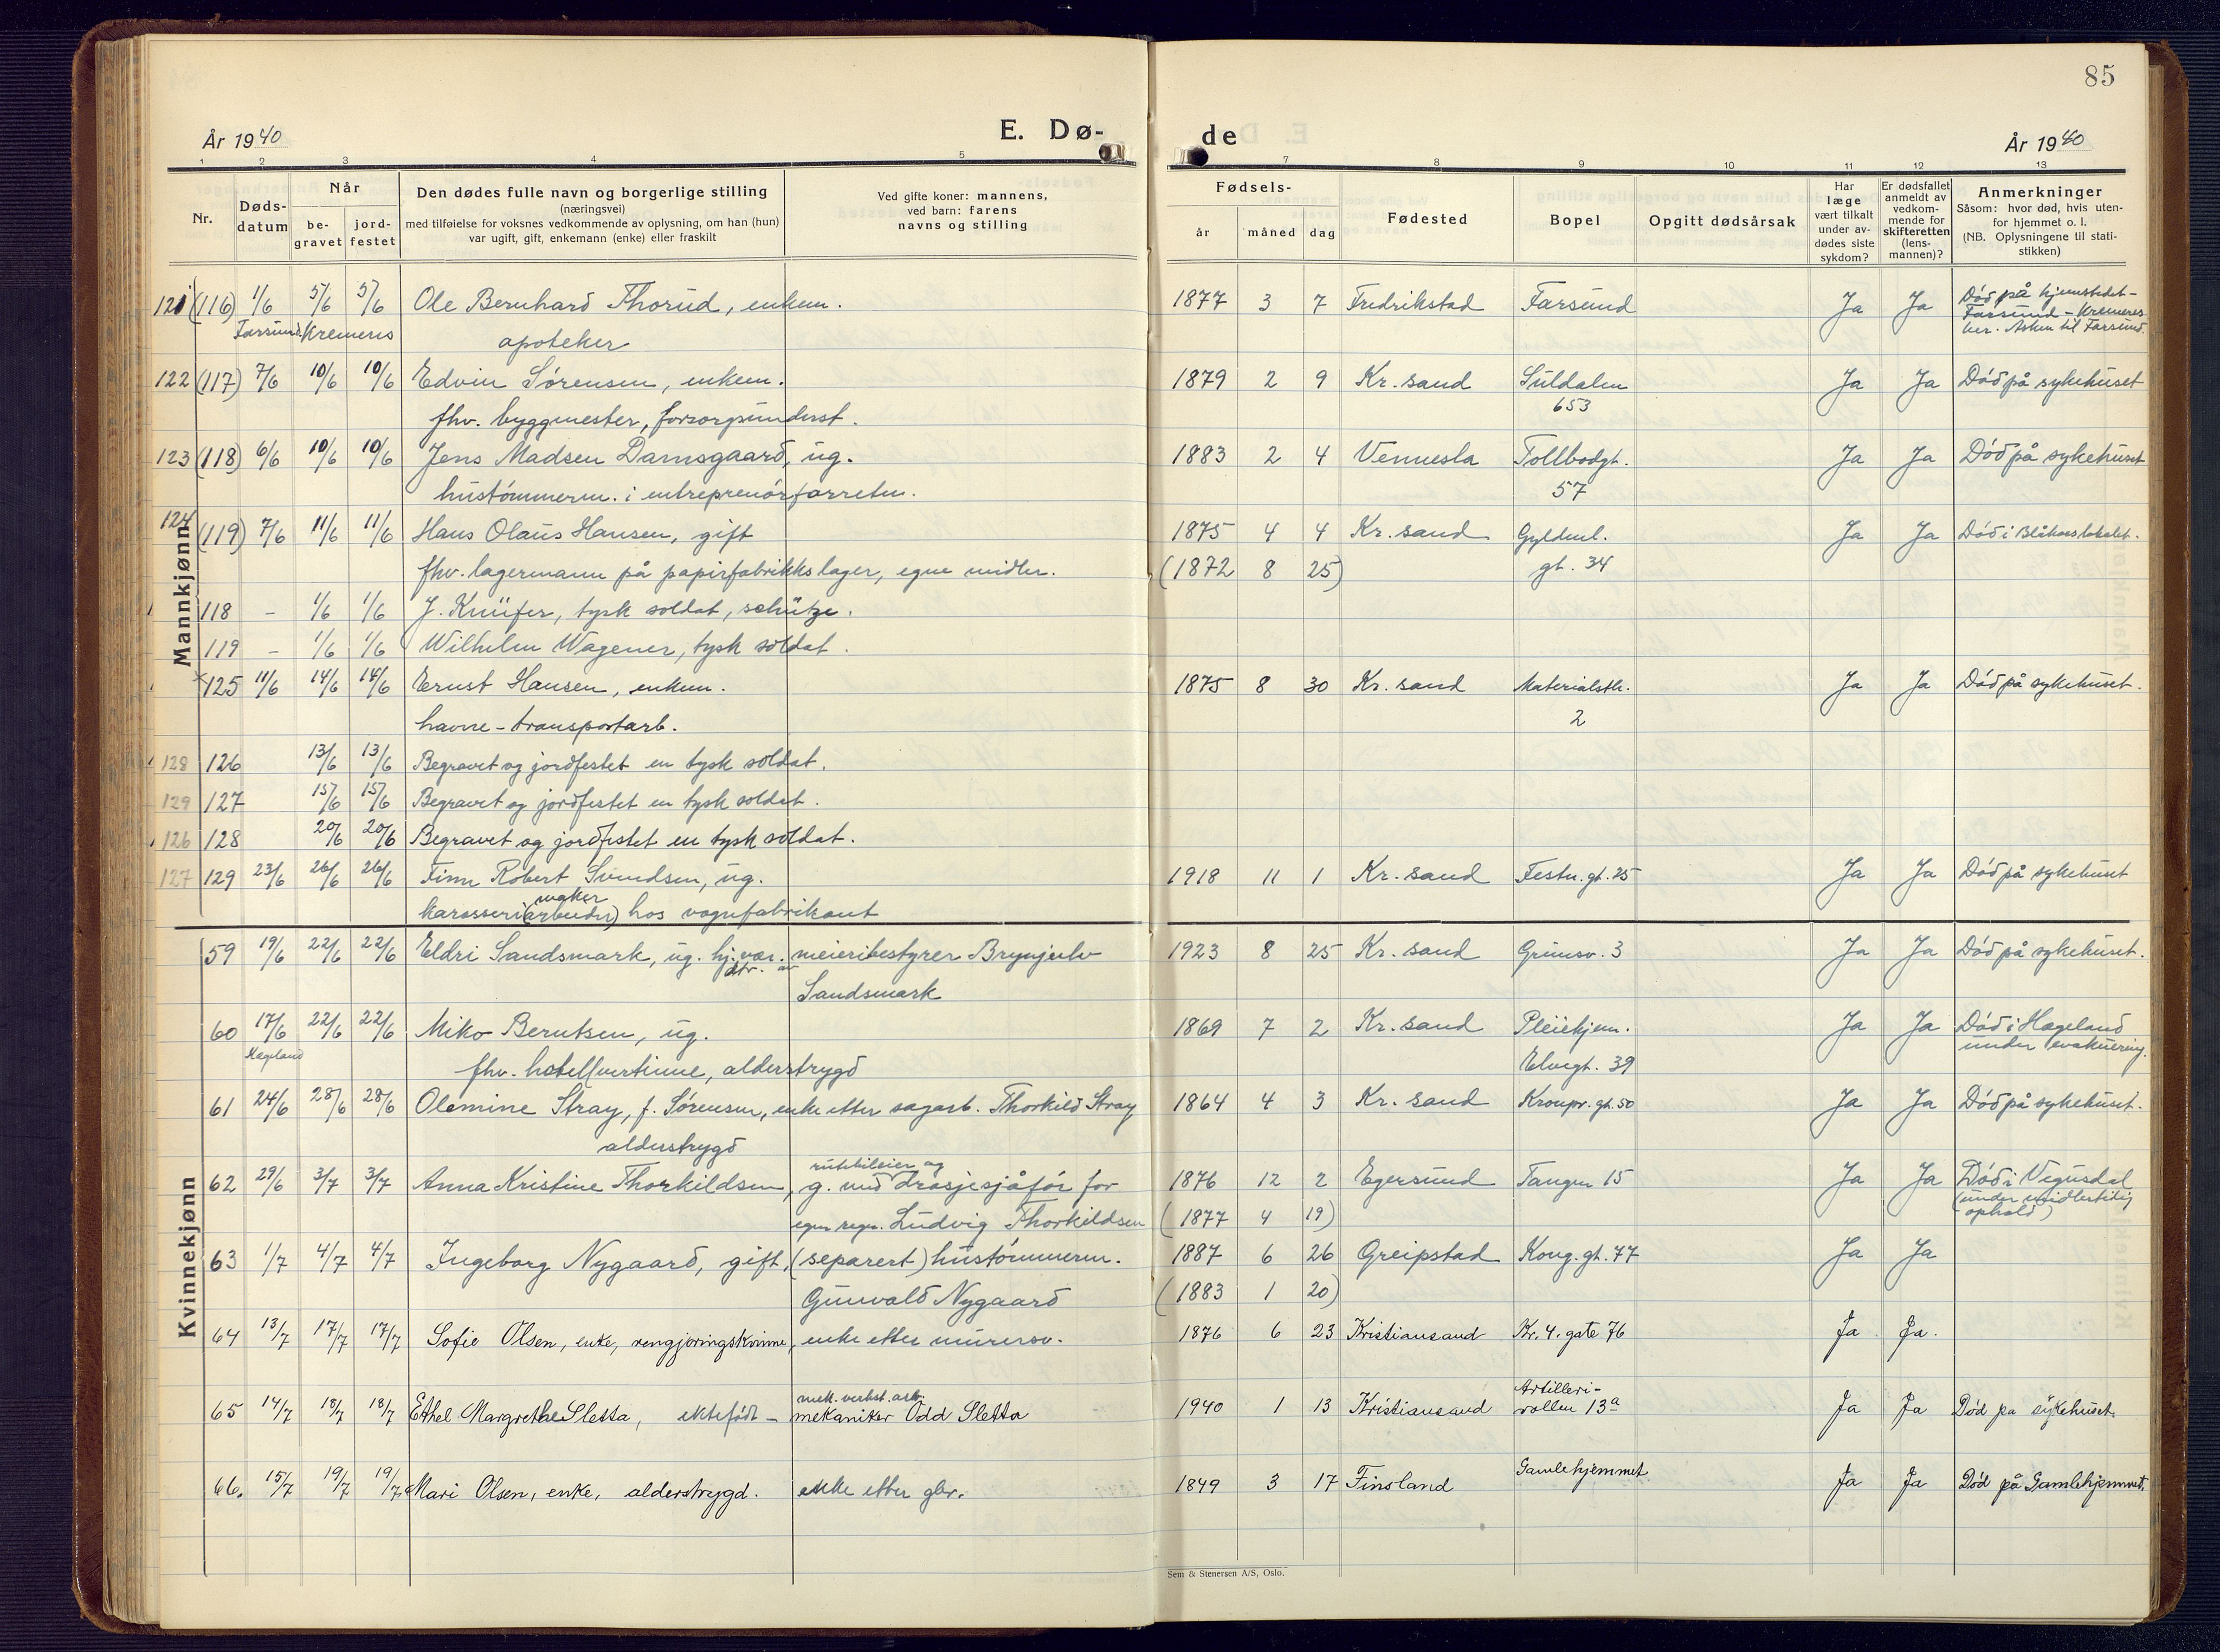 85
År 1940
E. Dø-
de
År 1940
1 2 3 4 5 7 8 9 10 11 12 13
Nr.
Døds-
datum
Når
be-
gravet
jord-
festet
Den dødes fulle navn og borgerlige stilling
(næringsvei)
med tilføielse for voksnes vedkommende av oplysning, om han (hun)
var ugift, gift, enkemann (enke) eller fraskilt
Ved gifte koner: mannens,
ved barn: farens
navns og stilling
Fødsels-
år måned dag
Fødested
Bopel
Opgitt dødsårsak
Har
læge
vært tilkalt
under av-
dødes siste
sykdom?
Er dødsfallet
anmeldt av
vedkom-
mende for
skifteretten
(lens-
mannen)?
Anmerkninger
Såsom: hvor død, hvis uten-
for hjemmet o. l.
(NB. Oplysningene til stati-
stikken)
Mannkjønn
121 (116) 1/6 5/6 5/6 Ole Bernhard Thorud, enkem. 1877 3 7 Fredrikstad Farsund Ja Ja Død på hjemstedet-
Farsund Kremeres apoteker Farsund - Kremeres
her. Asken til Farsund.
122 (117) 7/6 10/6 10/6 Edvin Sørensen, enkem. 1879 2 9 Kr. sand Suldalen Ja Ja Død på sykehuset
fhv. byggmester, forsorgsunderst. 653
123 (118) 6/6 10/6 10/6 Jens Madsen Damsgaard, ug. 1883 2 4 Vennesla Tollbodgt. Ja Ja Død på sykehuset
hustømmerm. i entreprenørforretn. 57
124 (119) 7/6 11/6 11/6 Hans Olaus Hansen, gift 1875 4 4 Kr. sand Gyldenl. Ja Ja Død i Blåkorslokalet.
fhv. lagermann på papirfabrikkslager, egne midler. (1872 8 25) gt. 34
118 - 1/6 1/6 J. Knüfer, tysk soldat, schütze.
119 - 1/6 1/6 Wilhelm Wagener, tysk soldat.
125 11/6 14/6 14/6 Ernst Hansen, enkem. 1875 8 30 Kr. sand Materialstr. Ja Ja Død på sykehuset.
havne-transportarb. 2
128 126 13/6 13/6 Begravet og jordfestet en tysk soldat.
129 127 15/6 15/6 Begravet og jordfestet en tysk soldat.
126 128 20/6 20/6 Begravet og jordfestet en tysk soldat.
127 129 23/6 26/6 26/6 Finn Robert Svendsen, ug. 1918 11 1 Kr. sand Festn. gt. 25 Ja Ja Død på sykehuset
maker
karosseri(arbeider) hos vognfabrikant
Kvinnekjønn
59 19/6 22/6 22/6 Eldri Sandsmark, ug. hj. vær. meieribestyrer Brynjulv 1923 8 25 Kr. sand Grimsv. 3 Ja Ja Død på sykehuset.
dtr. av Sandsmark
60 17/6 22/6 22/6 Miko Berntsen, ug. 1869 7 2 Kr. sand Pleiehjem. Ja Ja Død i Hægeland
Hægeland fhv. hotellvertinne, alderstrygd Elvegt. 39 under evakuering.
61 24/6 28/6 28/6 Olemine Stray, f. Sørensen, enke etter sagarb. Thorkild Stray 1864 4 3 Kr. sand Kronpr. gt. 50 Ja Ja Død på sykehuset.
alderstrygd
rutebileier og
62 29/6 3/7 3/7 Anna Kristine Thorkildsen, g. med drosjesjåfør for 1876 12 2 Egersund Tangen 15 Ja Ja Død i Vegusdal
egen regn. Ludvig Thorkildsen (1877 4 19) (under midlertidig
ophold)
63 1/7 4/7 4/7 Ingeborg Nygaard, gift, (separert) hustømmerm. 1887 6 26 Greipstad Kong. gt. 77 Ja Ja
Gunvald Nygaard (1883 1 20)
64 13/7 17/7 17/7 Sofie Olsen, enke, rengjøringskvinne, enke etter murersv. 1876 6 23 Kristiansand Kr. 4. gate 76 Ja Ja.
mek. verkst. arb. Artilleri-
65 14/7 18/7 18/7 Ethel Margrethe Sletta, ektefødt - mekaniker Odd Sletta 1940 1 13 Kristiansand vollen 13a Ja Ja Død på sykehuset.
66. 15/7 19/7 19/7 Mari Olsen, enke, alderstrygd. enke etter gbr. 1849 3 17 Finsland Gamlehjemmet Ja Ja Død på Gamlehjemmet.
Sem & Stenersen A/S, Oslo.